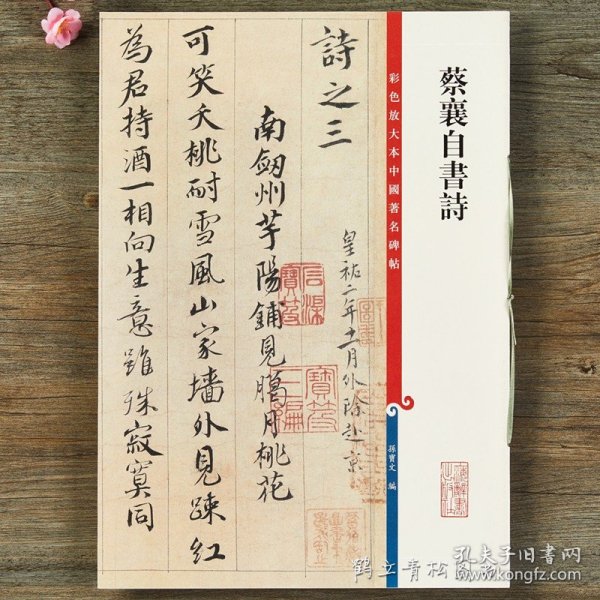 蔡襄自書詩
彩色放大本中國著名碑帖
孫寶文 編
詩之三
皇祐二年十一月外除赴京
南劒州芋陽鋪見臘月桃花
可笑夭桃耐雪風山家墻外見疎紅
為君持酒一相向生意雖殊寂寞同
鹤立青松图书
孔夫子旧书网
www.kongfz.com